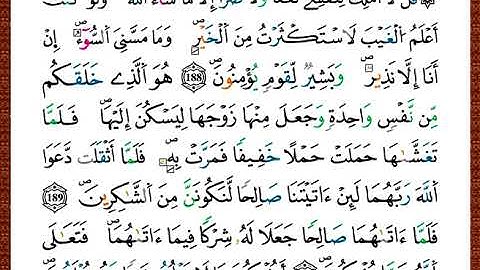 قُل لَّا أَمْلِكُ لِنَفْسِے نَفْعًا وَلَا ضَرًّا إِلَّا مَا شَآءَ اَ۬للَّهُۖ وَلَوْ كُنتُ
أَعْلَمُ اُ۬لْغَيْبَ لَاسْتَكْثَرْتُ مِنَ اَ۬لْخَيْرِۖ وَمَا مَسَّنِيَ اَ۬لسُّوٓءُۖ إِنْ
أَنَا إِلَّا نَذِيرٌۖ وَبَشِيرٌ لِّقَوْمٍ يُؤْمِنُونَۖ 188 هُوَ اَ۬لَّذِے خَلَقَكُم
مِّن نَّفْسٍ وَٰحِدَةٍ وَجَعَلَ مِنْهَا زَوْجَهَا لِيَسْكُنَ إِلَيْهَاۖ فَلَمَّا
تَغَشَّىٰهَا حَمَلَتْ حَمْلًا خَفِيفًا فَمَرَّتْ بِهِۖ فَلَمَّا أَثْقَلَت دَّعَوَا
اَ۬للَّهَ رَبَّهُمَا لَئِنْ ءَاتَيْتَنَا صَٰلِحًا لَّنَكُونَنَّ مِنَ اَ۬لشَّٰكِرِينَۖ 189
فَلَمَّا ءَاتَىٰهُمَا صَٰلِحًا جَعَلَا لَهُۥ شِرْكًا فِيمَا ءَاتَىٰهُمَاۖ فَتَعَٰلَى